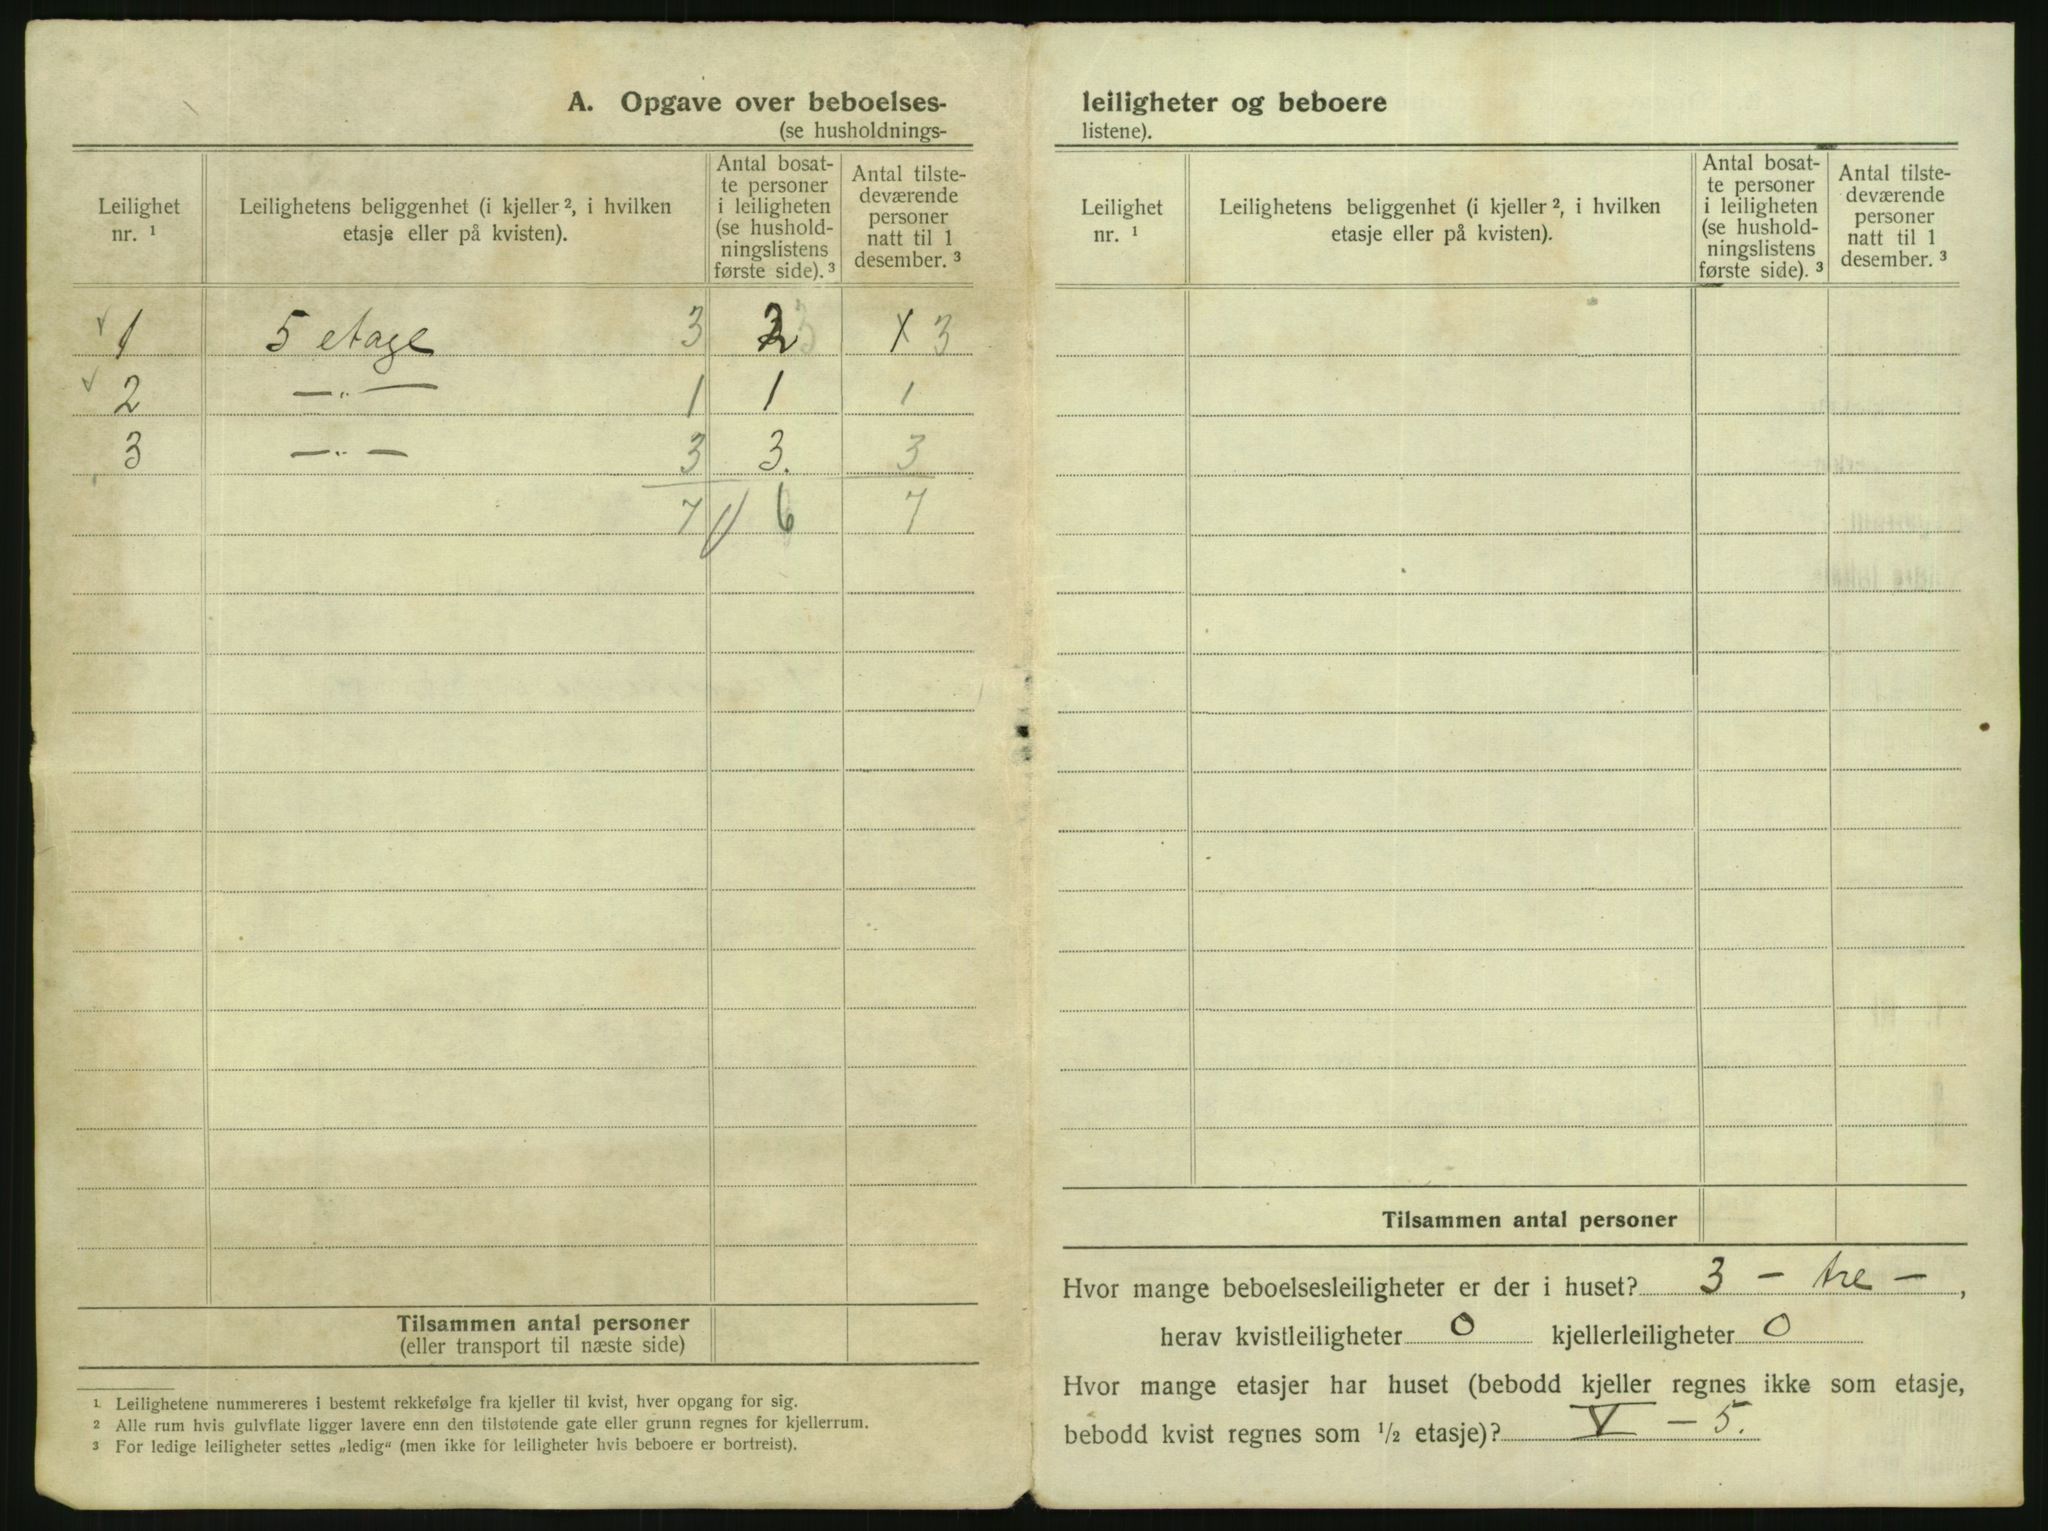 A. Opgave over beboelses-
(se husholdnings-
Leilighet
nr. ¹
Leilighetens beliggenhet (i kjeller ², i hvilken
etasje eller på kvisten).
Antal bosat-
te personer
i leiligheten
(se hushold-
ningslistens
første side). ³
Antal tilste-
deværende
personer
natt til 1
desember. ³
1 5 etage 3 2 3 x 3
2 —„— 1 1 1
3 —„— 3 3. 3
7 // 6 7
Tilsammen antal personer
(eller transport til næste side)
¹ Leilighetene nummereres i bestemt rekkefølge fra kjeller til kvist, hver opgang for sig.
² Alle rum hvis gulvflate ligger lavere enn den tilstøtende gate eller grunn regnes for kjellerrum.
³ For ledige leiligheter settes „ledig“ (men ikke for leiligheter hvis beboere er bortreist).
leiligheter og beboere
listene).
Leilighet
nr. ¹
Leilighetens beliggenhet (i kjeller ², i hvilken
etasje eller på kvisten).
Antal bosat-
te personer
i leiligheten
(se hushold-
ningslistens
første side). ³
Antal tilste-
deværende
personer
natt til 1
desember. ³
Tilsammen antal personer
Hvor mange beboelsesleiligheter er der i huset? 3 — tre — ,
herav kvistleiligheter 0 kjellerleiligheter 0
Hvor mange etasjer har huset (bebodd kjeller regnes ikke som etasje,
bebodd kvist regnes som ½ etasje)? V — 5.